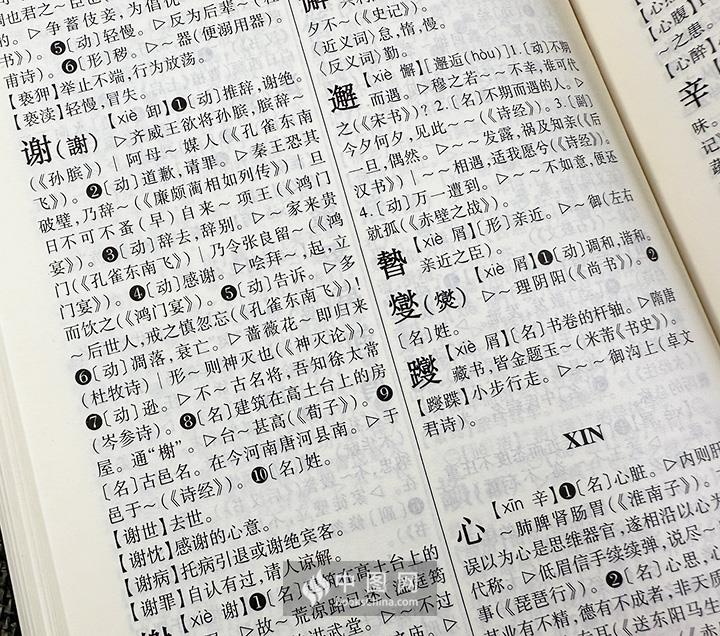 ▷争蓄伎妾,为倡优
❺〔动〕轻慢。▷反为后辈~
书》)。❻〔形〕秽。▷~器(便溺用器)。
甫诗)。
【亵狎】举止不端,行为放荡。
【亵渎】轻慢,冒失。
谢(謝)
【xiè 卸】❶〔动〕推辞,谢绝。
▷齐威王欲将孙膑,膑辞~
(《孙膑》)|阿母~媒人(《孔雀东南
飞》)。❷〔动〕道歉,请罪。▷秦王恐其
破璧,乃辞~(《廉颇蔺相如列传》)|旦
日不可不蚤(早)自来~项王(《鸿门
宴》)。❸〔动〕辞去,辞别。▷~家来贵
门(《孔雀东南飞》)|乃令张良留~(《鸿
门宴》)。❹〔动〕感谢。▷哙拜~,起,立
而饮之(《鸿门宴》)。❺〔动〕告诉。▷多
~后世人,戒之慎忽忘(《孔雀东南飞》)!
❻〔动〕凋落,衰亡。▷蔷薇花~即归来
(杜牧诗)|形~则神灭也(《神灭论》)。
❼〔动〕逊。▷不~古名将,吾知徐太常
(岑参诗)。❽〔名〕建筑在高土台上的房
屋。通“榭”。▷台~甚高(《荀子》)。❾
〔名〕古邑名。在今河南唐河县南。▷于
邑于~(《诗经》)。❿〔名〕姓。
【谢世】去世。
【谢忱】感谢的心意。
【谢病】托病引退或谢绝宾客。
【谢罪】自认有过,请人谅解。
【xiè 谢】❶〔名〕建筑在高土台上的
▷故~荒凉
夕不~(《史记》)。
〈近义词〉怠,惰,慢。
〈反义词〉勤。
邂
【xiè 懈】[邂逅(hòu)]1.〔动〕不期
而遇。▷穆之若~~不幸,谁可代
之(《宋书》)?2.〔名〕不期而遇的人。▷
今夕何夕,见此~~(《诗经》)。3.〔副〕
一旦,偶然。▷~~发露,祸及知亲(《后
汉书》)|~~相遇,适我愿兮(《诗经》)。
4.〔动〕万一遭到。▷~~不如意,便还
就孤(《赤壁之战》)。
暬
【xiè 屑】〔形〕亲近。▷~御(左右
亲近之臣)。
燮(爕)
【xiè 屑】❶〔动〕调和,谐和。
▷~理阴阳(《尚书》)。❷
〔名〕姓。
躞
【xiè 屑】〔名〕书卷的杆轴。▷隋唐
藏书,皆金题玉~(米芾《书史》)。
【躞蹀】小步行走。▷~~御沟上(卓文
君诗)。
XIN
心
【xīn 辛】❶〔名〕心脏。▷内则肝
~肺脾肾肠胃(《淮南子》)。
误以为心是思维器官,遂相沿以心为
代称。▷低眉信手续续弹,说尽~
事(《琵琶行》)。❷〔名〕心思,心
业有不精,德有不成者,非天质
《送东阳马生
【心腹】
~之患。
【心醉】
辛
味。
记
中图网